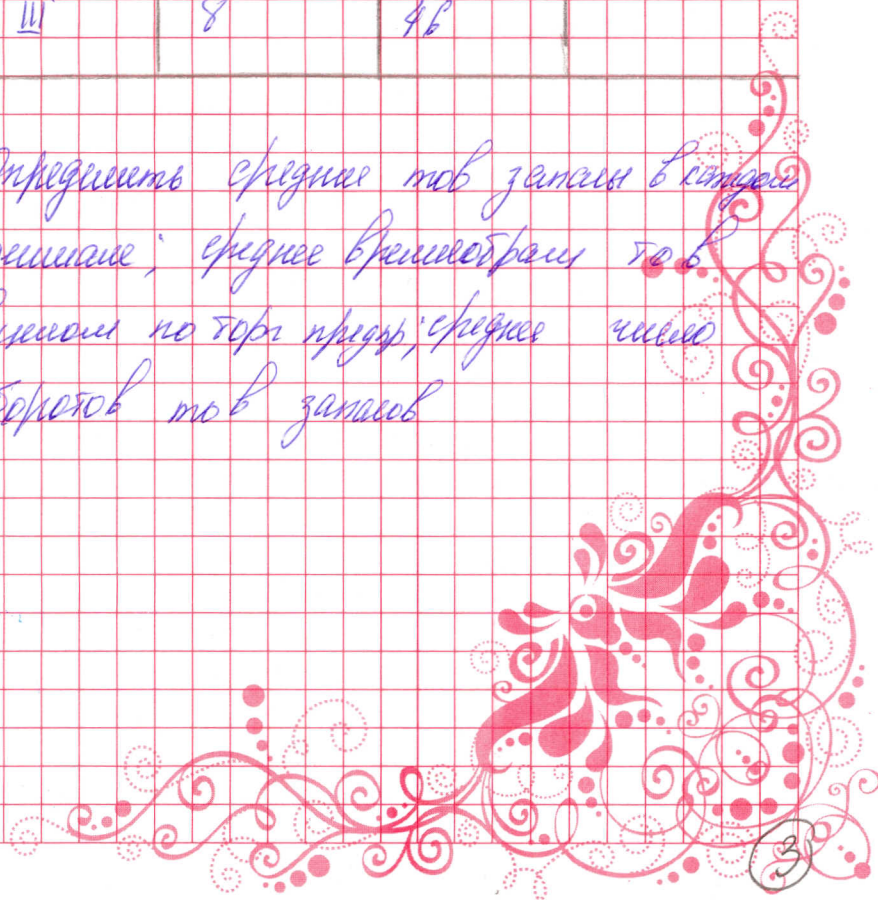 III 8 46
пределить средние тов запасы в каждом
среднее времяобращ тов
целом по торг предпр; среднее число
боротов тов запасов
3